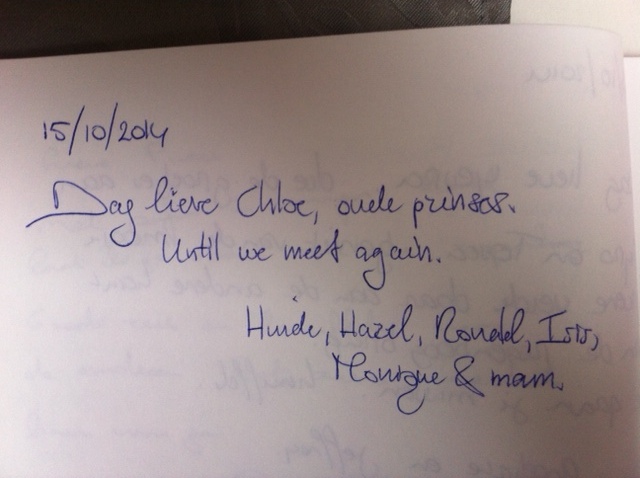 15/10/2014
Dag lieve Chloe, oude prinses.
Until we meet again.
Hinde, Hazel, Ronald, Isis,
Monique & mam.